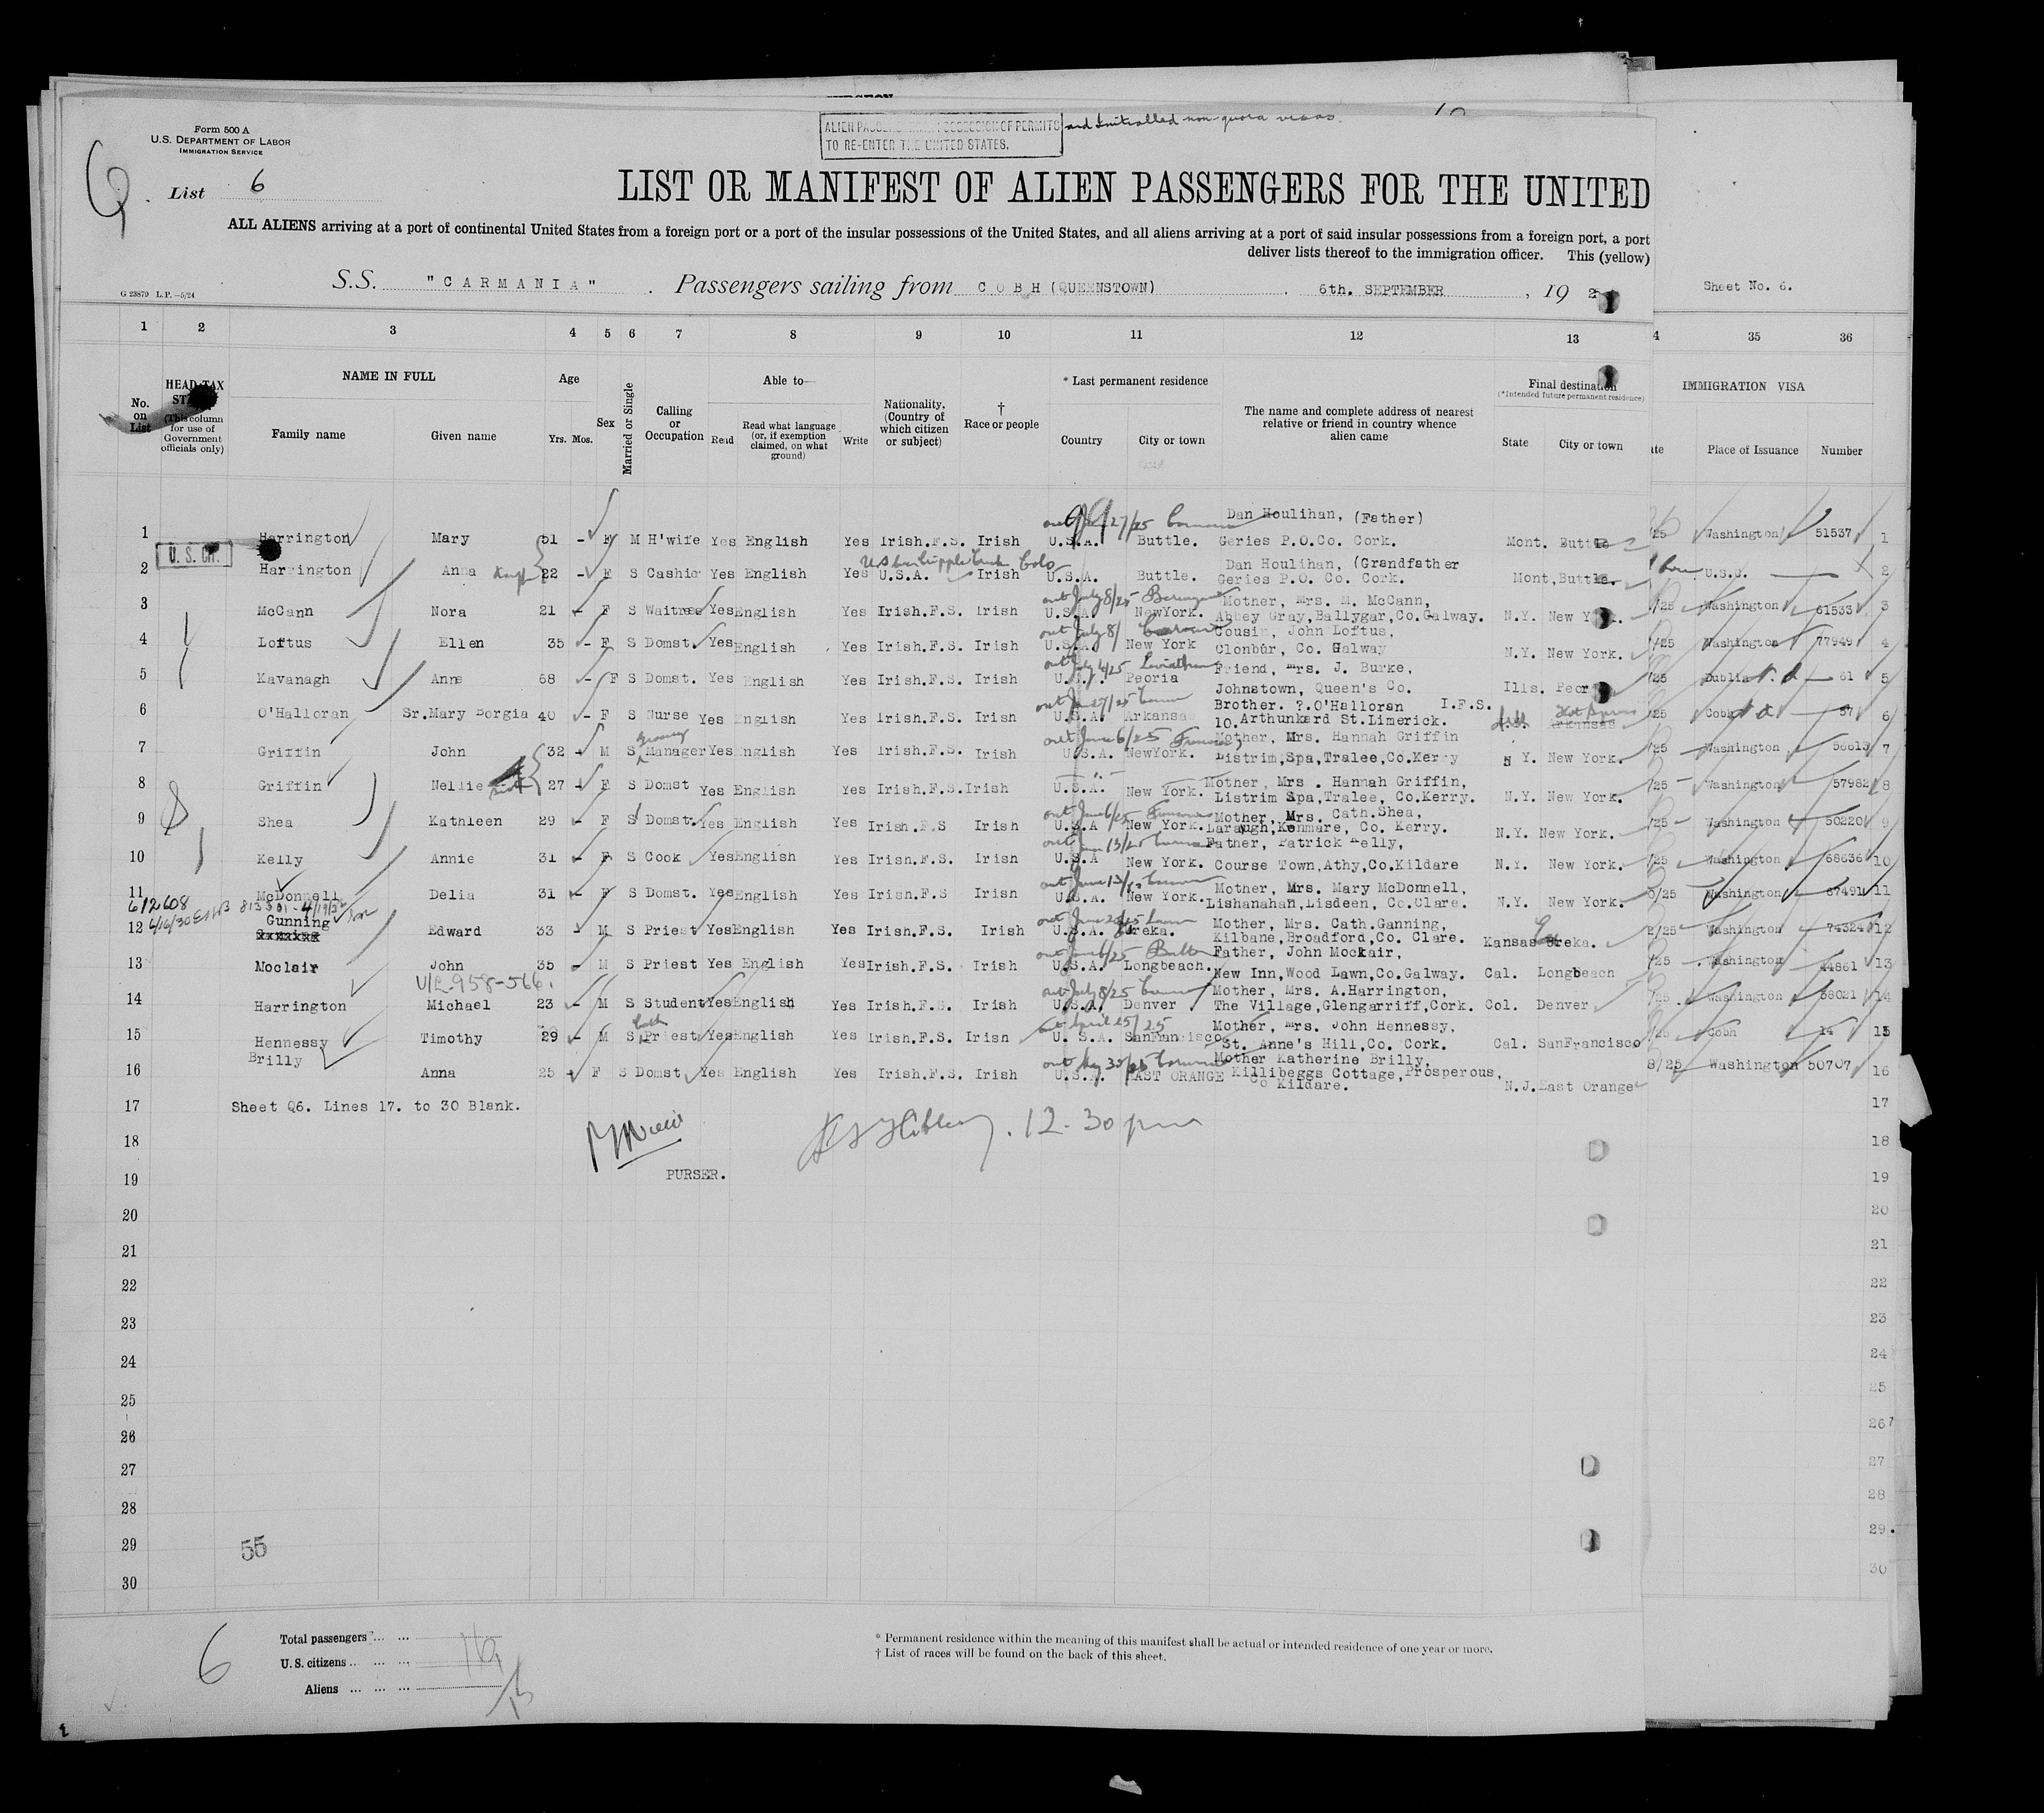 ALIEN PASSENGERS IN POSSESSION OF PERMITS and initialled non-quota visas.
TO RE-ENTER THE UNITED STATES.
Form 500 A
U.S. DEPARTMENT OF LABOR
IMMIGRATION SERVICE
Q. List 6
LIST OR MANIFEST OF ALIEN PASSENGERS FOR THE UNITED
ALL ALIENS arriving at a port of continental United States from a foreign port or a port of the insular possessions of the United States, and all aliens arriving at a port of said insular possessions from a foreign port, a port
deliver lists thereof to the immigration officer. This (yellow)
S.S. "CARMANIA" . Passengers sailing from COBH (QUEENSTOWN) . 6th. SEPTEMBER , 19 2
G 23879 L.P.—5/24
Sheet No. 6.
1 2 3 4 5 6 7 8 9 10 11 12 13 35 36
No. on List
HEAD TAX (This column for use of Government officials only)
NAME IN FULL
Family name Given name
Age
Yrs. Mos.
Sex
Married or Single
Calling or Occupation
Able to—
Read
Read what language (or, if exemption claimed, on what ground)
Write
Nationality, (Country of which citizen or subject)
† Race or people
* Last permanent residence
Country City or town
The name and complete address of nearest relative or friend in country whence alien came
Final destination
(*Intended future permanent residence)
State City or town
IMMIGRATION VISA
Place of Issuance Number
Dan Houlihan, (Father)
1 Harrington Mary 51 - F M H'wife Yes English Yes Irish.F.S. Irish U.S.A. Buttle. Geries P.O.Co. Cork. Mont. Butte /25 Washington 51537 1
U.S. CIT.
Dan Houlihan, (Grandfather
2 Harrington Anna 22 - F S Cashier Yes English Yes U.S.A. Irish U.S.A. Buttle. Geries P.O. Co. Cork. Mont, Butte. U.S.C. 2
out July 8/25 Mother, Mrs. M. McCann,
3 McCann Nora 21 - F S Waitress Yes English Yes Irish.F.S. Irish U.S.A. NewYork. Abbey Gray,Ballygar,Co.Galway. N.Y. New York. /25 Washington 61533 3
out July 8/ Cousin, John Loftus,
4 Loftus Ellen 35 - F S Domst. Yes English Yes Irish.F.S. Irish U.S.A. New York Clonbur, Co. Galway N.Y. New York. /25 Washington 77949 4
Leviathan Friend, Mrs. J. Burke,
5 Kavanagh Anne 68 - F S Domst. Yes English Yes Irish.F.S. Irish U.S.A. Peoria Johnstown, Queen's Co. Ills. Peoria /25 Dublin 61 5
Brother. ?.O'Halloran I.F.S.
6 O'Halloran Sr.Mary Borgia 40 - F S Nurse Yes English Yes Irish.F.S. Irish U.S.A. Arkansas 10.Arthunkard St.Limerick. Ark. Hot Springs Arkansas /25 Cobh 57 6
out June 6/25 Mother, Mrs. Hannah Griffin
7 Griffin John 32 - M S Grocery Manager Yes English Yes Irish.F.S. Irish U.S.A. NewYork. Listrim,Spa,Tralee,Co.Kerry N Y. New York. /25 Washington 56613 7
Mother, Mrs . Hannah Griffin,
8 Griffin Nellie 27 - F S Domst Yes English Yes Irish.F.S. Irish U.S.A. New York. Listrim Spa,Tralee, Co.Kerry. N.Y. New York. /25 Washington 57982 8
out June 6/25 Mother, Mrs. Cath.Shea,
9 Shea Kathleen 29 - F S Domst. Yes English Yes Irish.F.S Irish U.S.A New York. Laragh,Kenmare, Co. Kerry. N.Y. New York. /25 Washington 50220 9
out June 13/25 Father, Patrick Kelly,
10 Kelly Annie 31 - F S Cook Yes English Yes Irish.F.S. Irish U.S.A New York. Course Town,Athy,Co.Kildare N.Y. New York. /25 Washington 68636 10
out June 13/25 Mother, Mrs. Mary McDonnell,
11 McDonnell Delia 31 - F S Domst. Yes English Yes Irish.F.S Irish U.S.A. New York. Lishanahan,Lisdeen, Co.Clare. N.Y. New York. 0/25 Washington 67491 11
612608
6/16/30
Gunning Mother, Mrs. Cath.Ganning,
12 Edward 33 - M S Priest Yes English Yes Irish.F.S. Irish U.S.A. Eureka. Kilbane,Broadford,Co. Clare. Kansas Eureka. 2/25 Washington 74324 12
Father, John Mockair,
13 Moclair John 35 - M S Priest Yes English Yes Irish.F.S. Irish U.S.A. Longbeach. New Inn,Wood Lawn,Co.Galway. Cal. Longbeach /25 Washington 44861 13
V/L-958-566.
out July 8/25 Mother, Mrs. A.Harrington,
14 Harrington Michael 23 - M S Student Yes English Yes Irish.F.S. Irish U.S.A. Denver The Village,Glengarriff,Cork. Col. Denver /25 Washington 58021 14
out April 25/25 Mother, Mrs. John Hennessy,
15 Hennessy Timothy 29 - M S Cath Priest Yes English Yes Irish.F.S. Irish U. S.A. SanFrancisco St. Anne's Hill,Co. Cork. Cal. SanFrancisco /25 Cobh 14 15
Brilly Mother Katherine Brilly,
16 Anna 25 - F S Domst. Yes English Yes Irish.F.S. Irish U.S.A. EAST ORANGE Killibeggs Cottage,Prosperous, Co Kildare. N.J. East Orange 8/25 Washington 50707 16
17 Sheet Q6. Lines 17. to 30 Blank. 17
12-30 pm
18 18
PURSER.
19 19
20 20
21 21
22 22
23 23
24 24
25 25
26 26
27 27
28 28
29 55 29
30 30
6
Total passengers ... ... 16
U.S. citizens ... ... ... 1
Aliens ... ... ... 15
* Permanent residence within the meaning of this manifest shall be actual or intended residence of one year or more.
† List of races will be found on the back of this sheet.